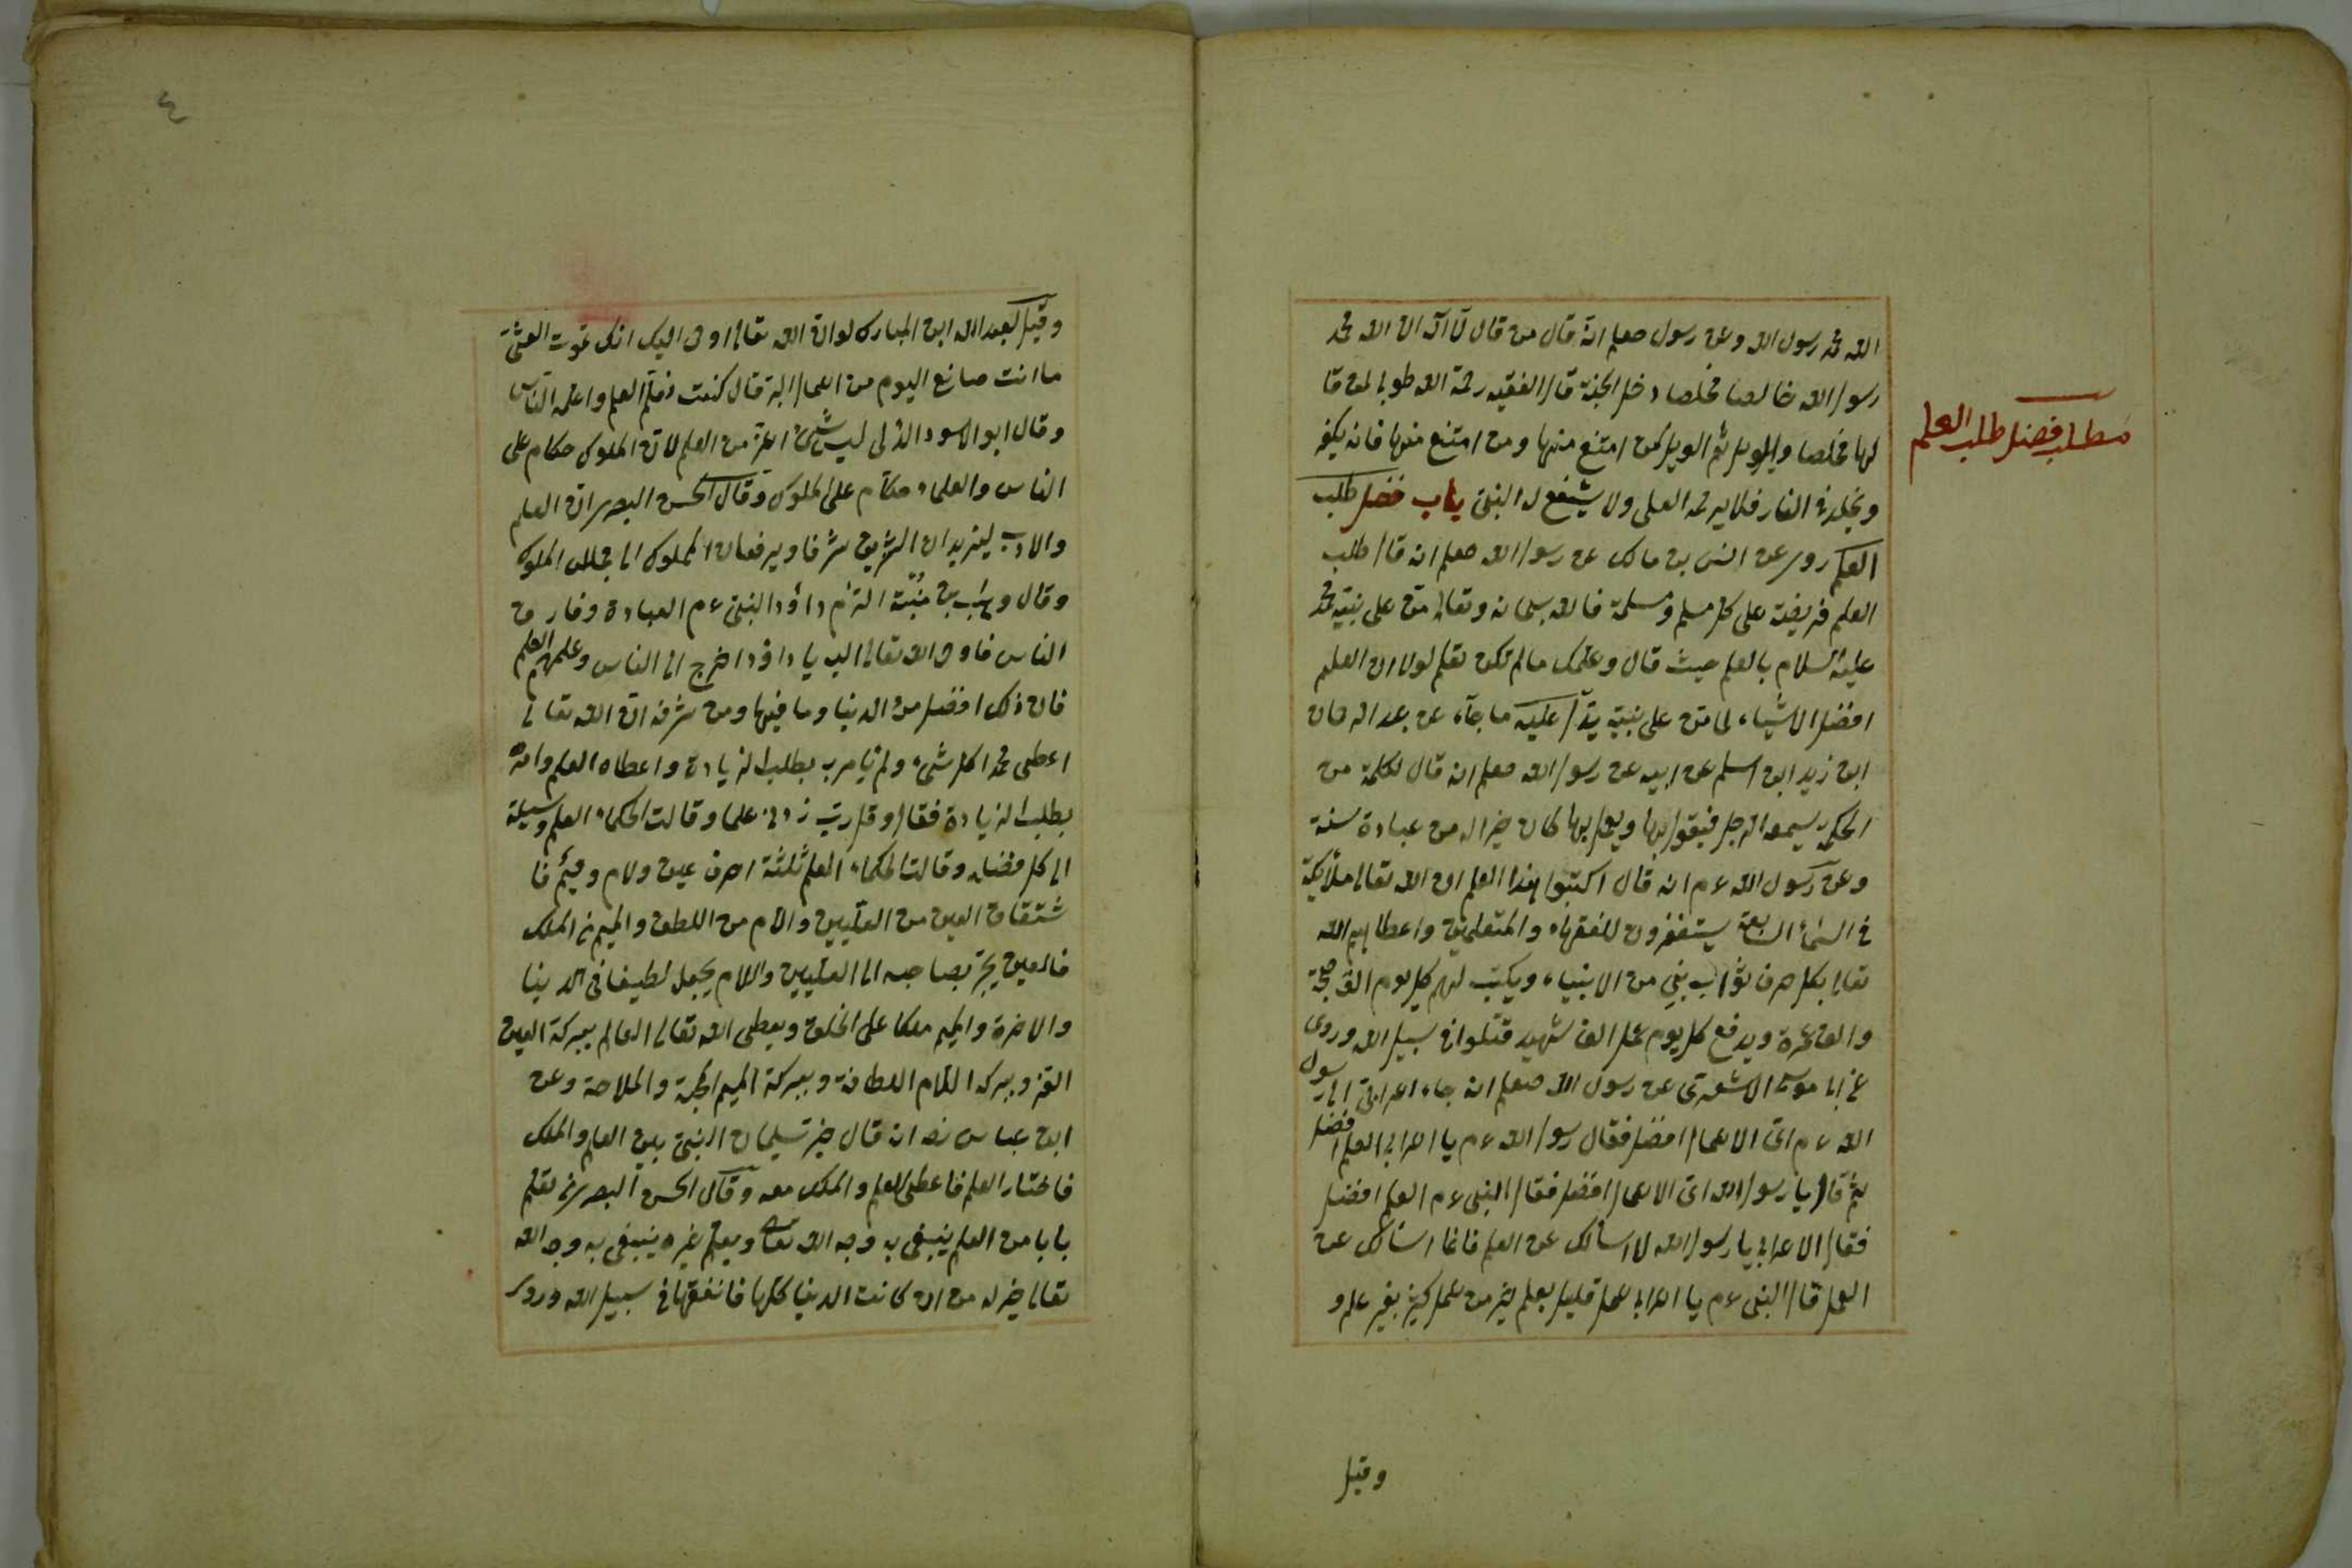 الله محمد رسول الله وعن رسول صعلم انه قال من قال لا اله الا الله محمد
رسول الله خالصا مخلصا دخل الجنة قال الفقيه رحمة الله طوبى لمن قا
لها مخلصا والويل ثم الويل لمن امتنع منها ومن امتنع منها فانه يكفر
ويخلد في النار فلا يرحمه العلى ولا يشفع له النبى باب فضل طلب
العلم روى عن انس بن مالك عن رسول الله صعلم انه قال طلب
العلم فريضة على كل مسلم ومسلمة فالله سبحانه وتعالى من على نبيه محمد
عليه السلام بالعلم حيث قال وعلمك مالم تكن تعلم لولا ان العلم
افضل الاشياء لما من على نبيه عليه ما جاء عن عبد الرحمان
ابن زيد ابن اسلم عن ابيه عن رسول الله صعلم انه قال لكلمة من
الحكم يسمع الرجل فيقول بها ويعمل بها كان خيرا له من عبادة سنة
وعن رسول الله ءم انه قال اكتبوا هذا العلم ان الله تعالى ملائكة
فى السماء السابعة يستغفرون للفقهاء والمتعلمين واعطاهم الله
تعالى بكل حرف ثواب نبى من الانبياء ويكتب لهم كل يوم الف حجة
والف عمرة ويدفع كل يوم عمل الف شهيد قتلوا فى سبيل الله وروى
عن ابا موسى الاشعرى عن رسول الله صعلم انه جاء اعرابى الى رسول
الله ءم اى الاعمال افضل فقال رسول الله ءم يا اعرابى العلم افضل
ثم قال يا رسول الله اى الاعمال افضل فقال النبى ءم العلم افضل
فقال الاعرابى يا رسول الله لا اسالك عن العلم فانما اسالك عن
العمل قال النبى ءم يا اعرابى عمل قليل بعلم خير من عمل كثير بغير علم و
مطلب فضل طلب العلم
وقيل
٤
وقيل لعبد الله ابن المبارك لو ان الله تعالى اوحى اليك انك تموت العشية
ما انت صانع اليوم من اعمال البر قال كنت اتعلم العلم واعلمه الناس
وقال ابو الاسود الدلى ليس شىء اعز من العلم لان الملوك حكام على
الناس والعلماء حكام على الملوك وقال الحسن البصرى ان العلم
والادب ليزيدان الشريف شرفا ويرفعان المملوك الى مجالس الملوك
وقال وهب بن منبه التزم داؤد النبى ءم العبادة وفارق
الناس فاوحى الله تعالى اليه يا داؤد اخرج الى الناس وعلمهم العلم
فان ذلك افضل من الدنيا وما فيها ومن شرفه ان الله تعالى
اعطى محمدا كل شىء ولم يامره بطلب الزيادة واعطاه العلم وامره
بطلب الزيادة فقال وقل رب زدنى علما وقالت الحكماء العلم وسيلة
الى كل فضيلة وقالت الحكماء العلم ثلثة احرف عين ولام وميم فا
شتقاق العين من العليين واللام من اللطف والميم من الملك
فالعين يجر بصاحبه الى العليين واللام يجعل لطيفا فى الدنيا
والاخرة والميم ملكا على الخلق ويعطى الله تعالى العالم ببركة العين
العز وببركة اللام اللطافة وببركة الميم المحبة والملاحة وعن
ابن عباس رضه انه قال خير سليمان النبى بين العلم والملك
فاختار العلم فاعطى العلم والملك معه وقال الحسن البصرى من تعلم
بابا من العلم ينبغى به وجه الله تعالى ويعلم غيره ينبغى به وجه الله
تعالى خير له من ان كانت الدنيا كلها فانفقها فى سبيل الله وروى